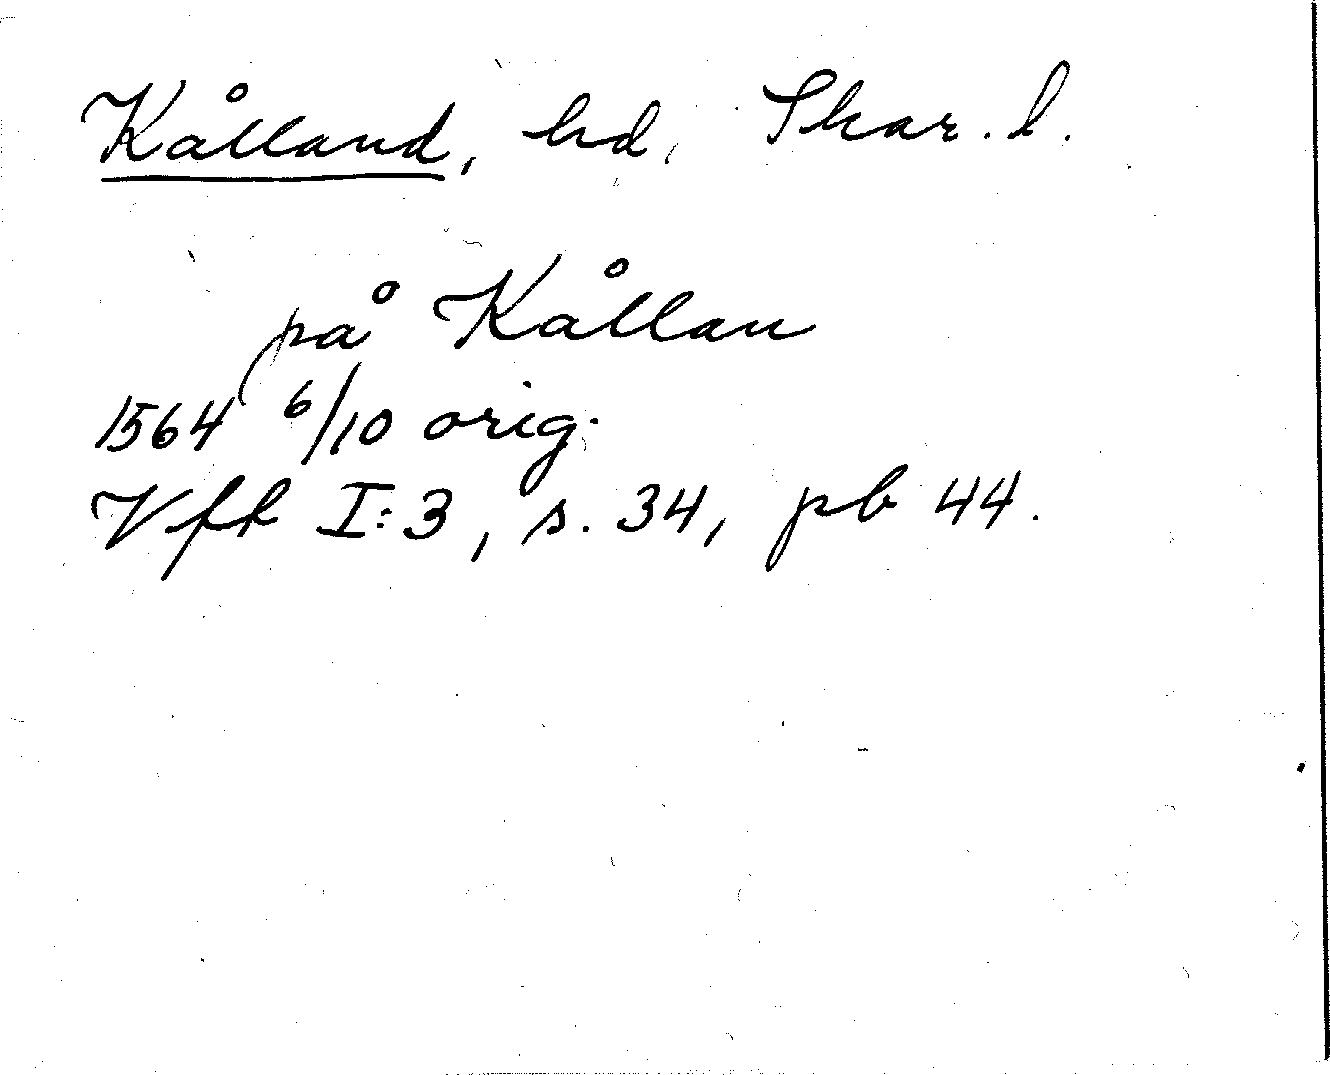 Kålland, hd, Skar. l.
på Kållan
1564 6/10 orig.
Vft I:3, s. 34, pb 44.